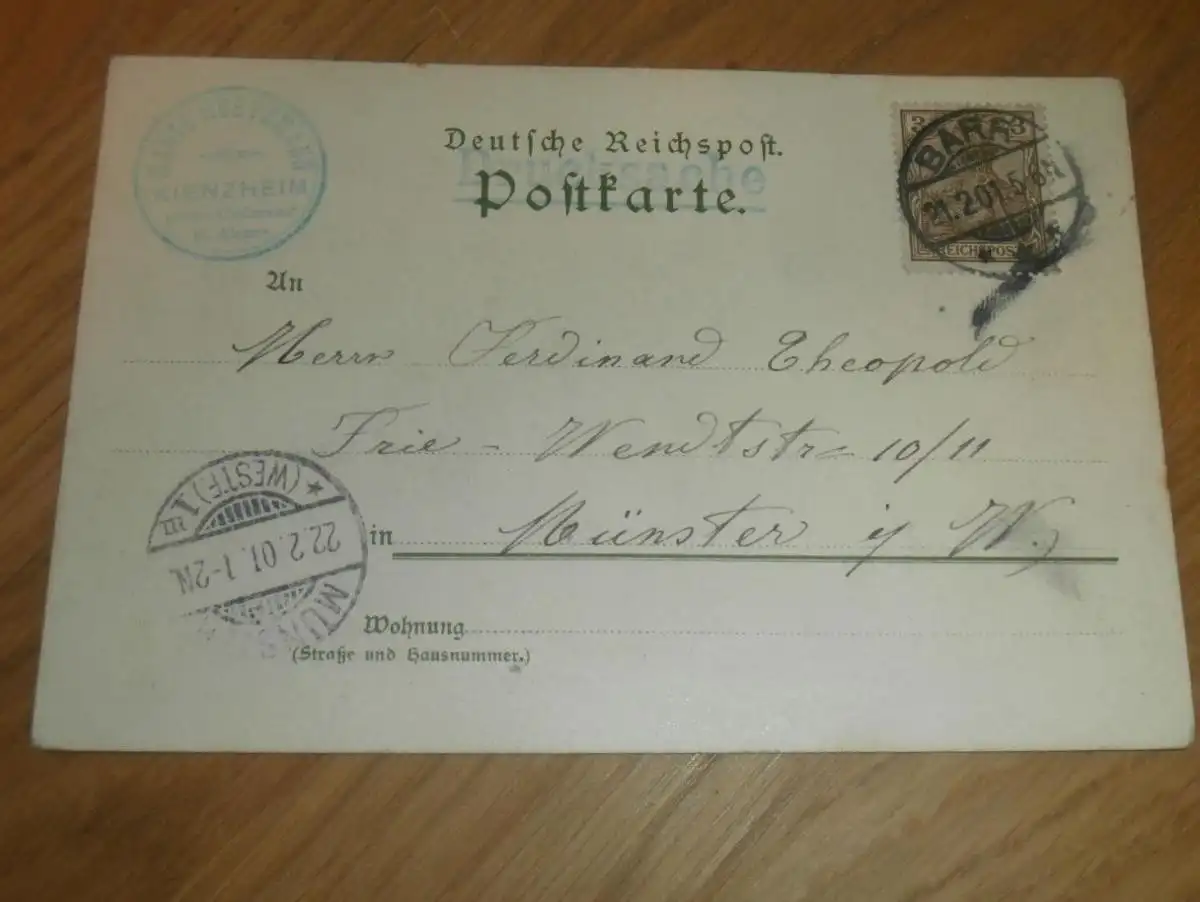 KIENZHEIM
Deutsche Reichspost.
Drucksache
Postkarte.
3 3
REICHSPOST
BARR
21.2.01.5-6N
An
Herrn Ferdinand Theopold
Frie - Wendtstr 10/11
in Münster i W.
(WESTF.) 1
22.2.01.1-2N.
MÜN
Wohnung
(Straße und Hausnummer.)